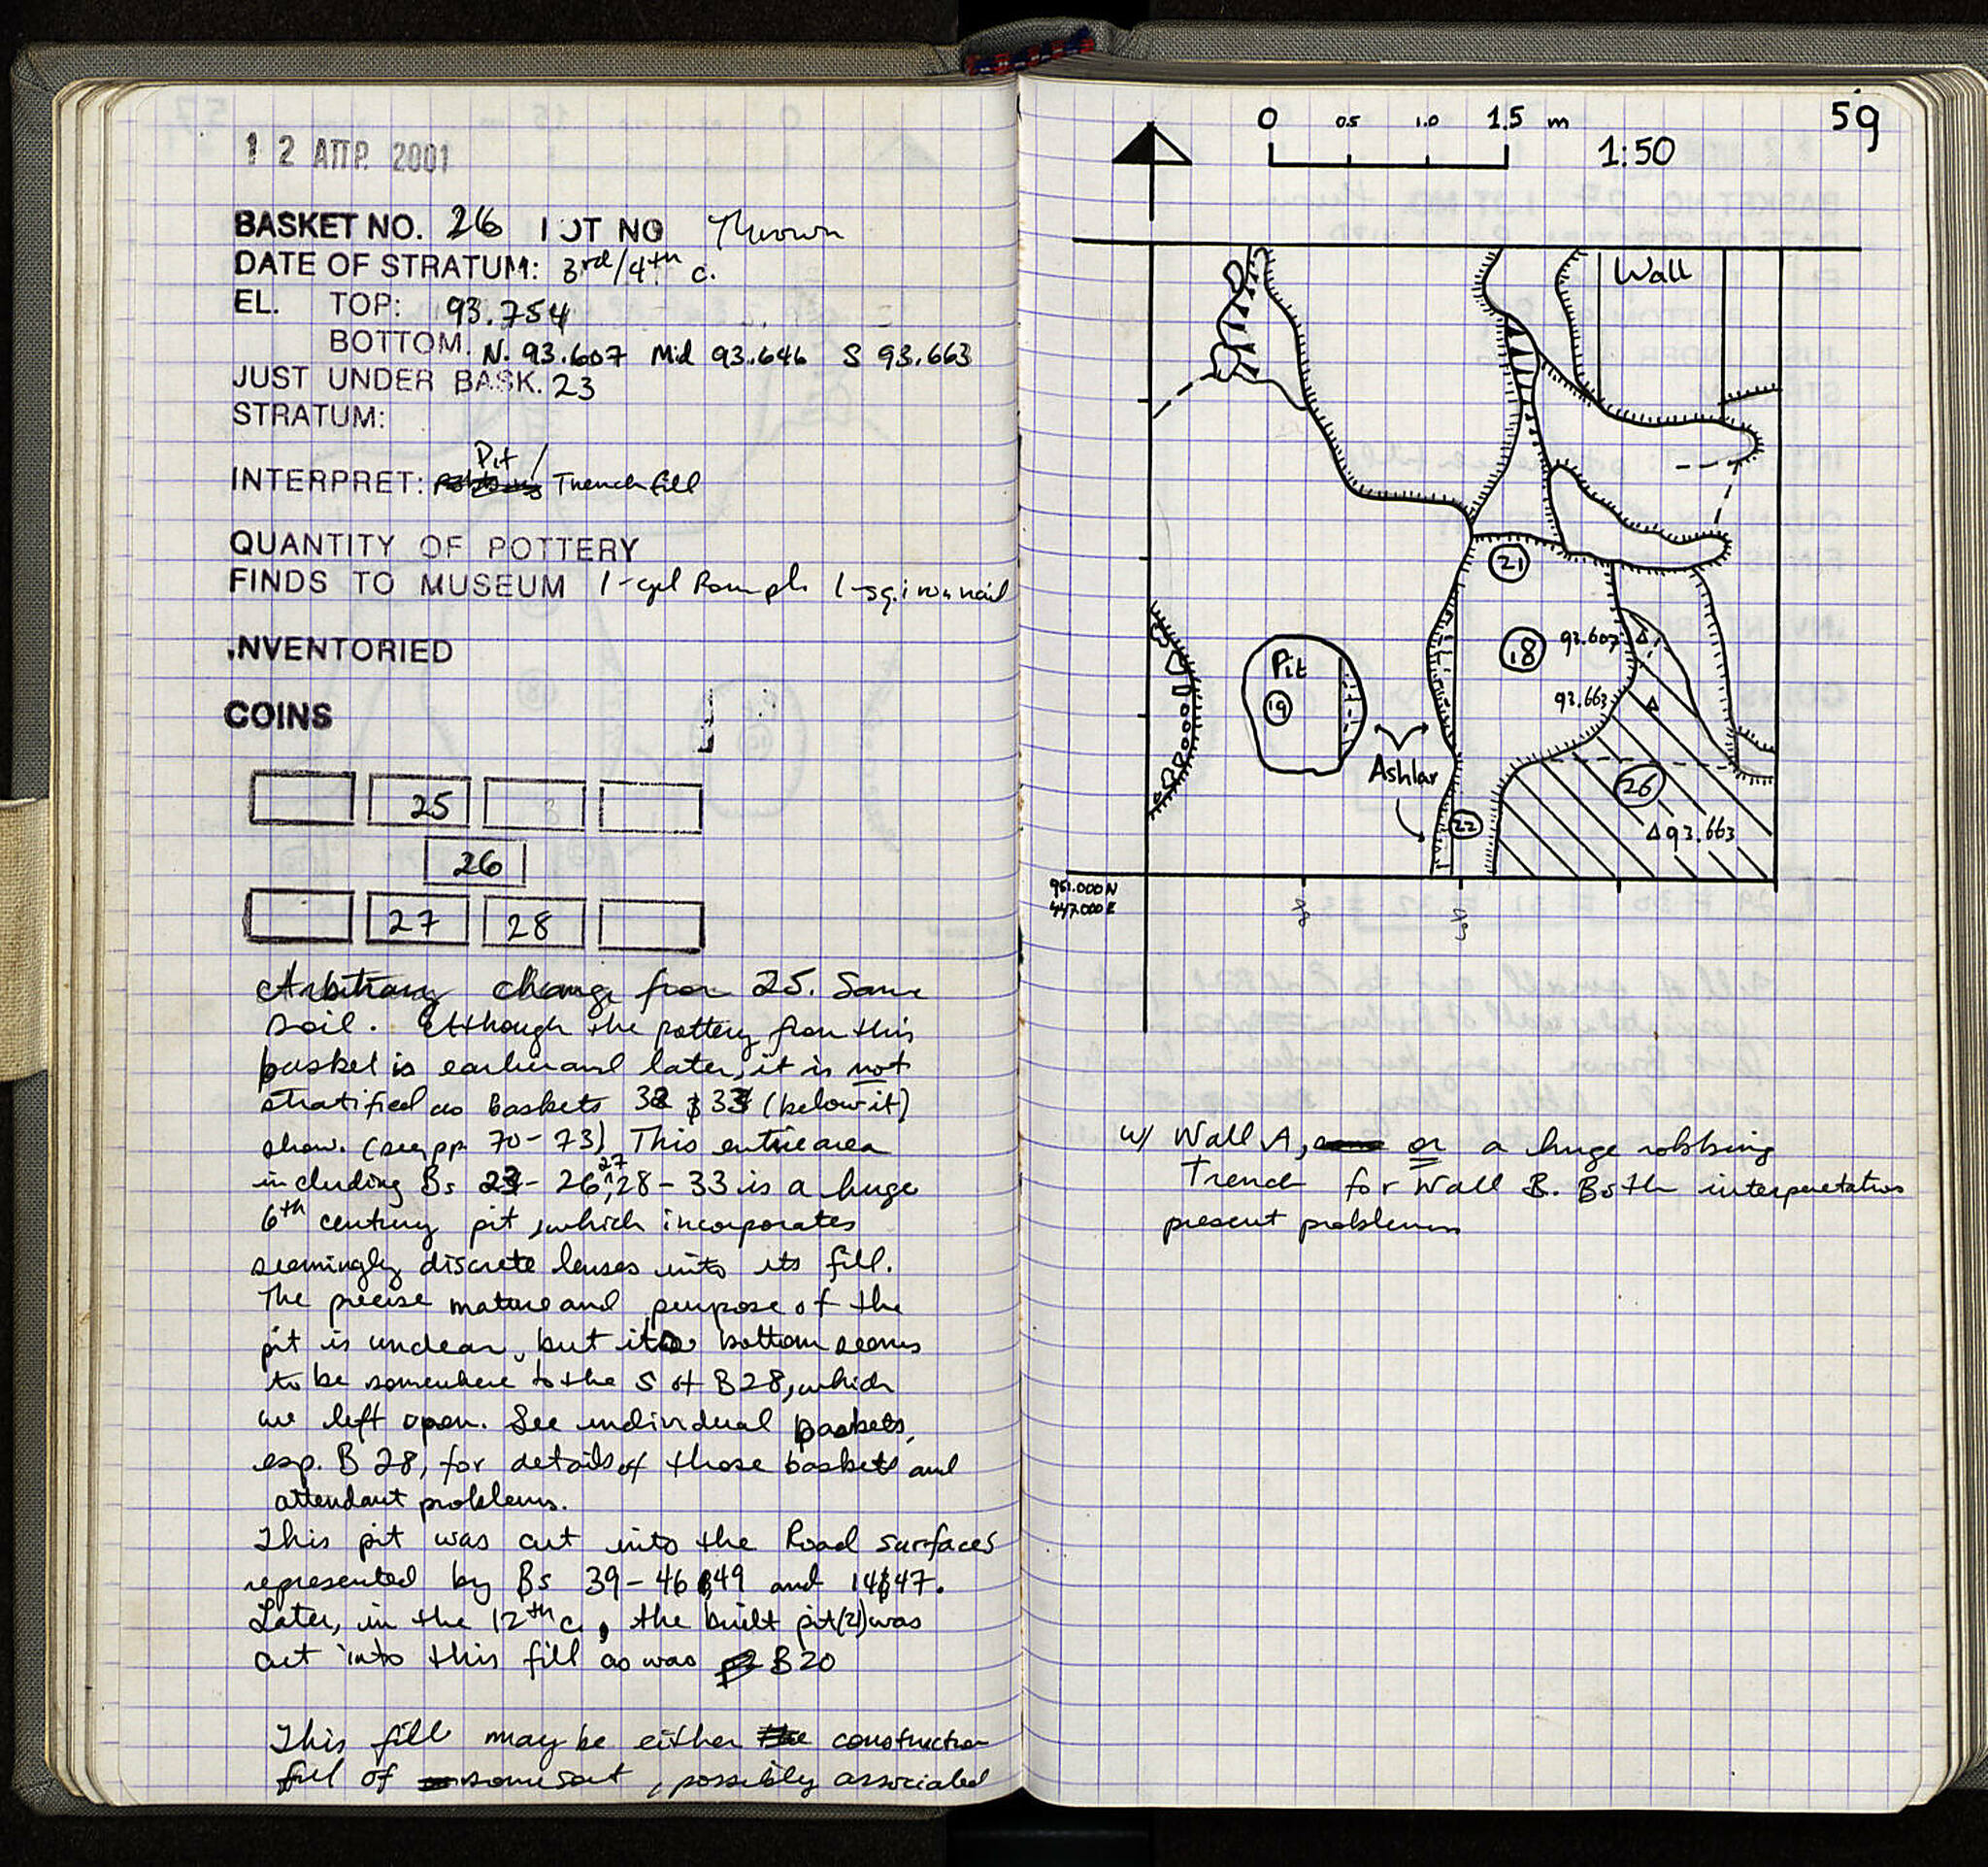 12 ΑΠΡ. 2001
BASKET NO. 26 LOT NO Thrown
DATE OF STRATUM: 3rd/4th c.
EL. TOP: 93.754
BOTTOM. N. 93.607 Mid 93.646 S 93.663
JUST UNDER BASK. 23
STRATUM:
Pit /
INTERPRET: Trench fill
QUANTITY OF POTTERY
FINDS TO MUSEUM 1- 1-sq. iron nail
INVENTORIED
COINS
25
26
27 28
Arbitrary change from 25. Same
soil. Although the pottery from this
basket is earlier and later, it is not
stratified as Baskets 32 & 33 (below it)
show. (see pp. 70-73) This entire area
27
including Bs 23-26, 28-33 is a huge
6th century pit, which incorporates
seemingly discrete lenses into its fill.
The precise nature and purpose of the
pit is unclear, but its bottom seems
to be somewhere to the S of B28, which
we left open. See individual baskets,
esp. B 28, for details of those baskets and
attendant problems.
This pit was cut into the Road surfaces
represented by Bs 39-46 & 49 and 14 & 47.
Later, in the 12th c, the built pit (21) was
cut into this fill as was B20
This fill may be either the construction
fill of some sort, possibly associated
59
0 0.5 1.0 1.5 m
1:50
Wall
21
18
93.607
Pit
19
93.663
Ashlar
26
22
Δ93.663
951.000 N
447.000 E
48
49
w/ Wall A, or a huge robbing
Trench for Wall B. Both interpretations
present problems